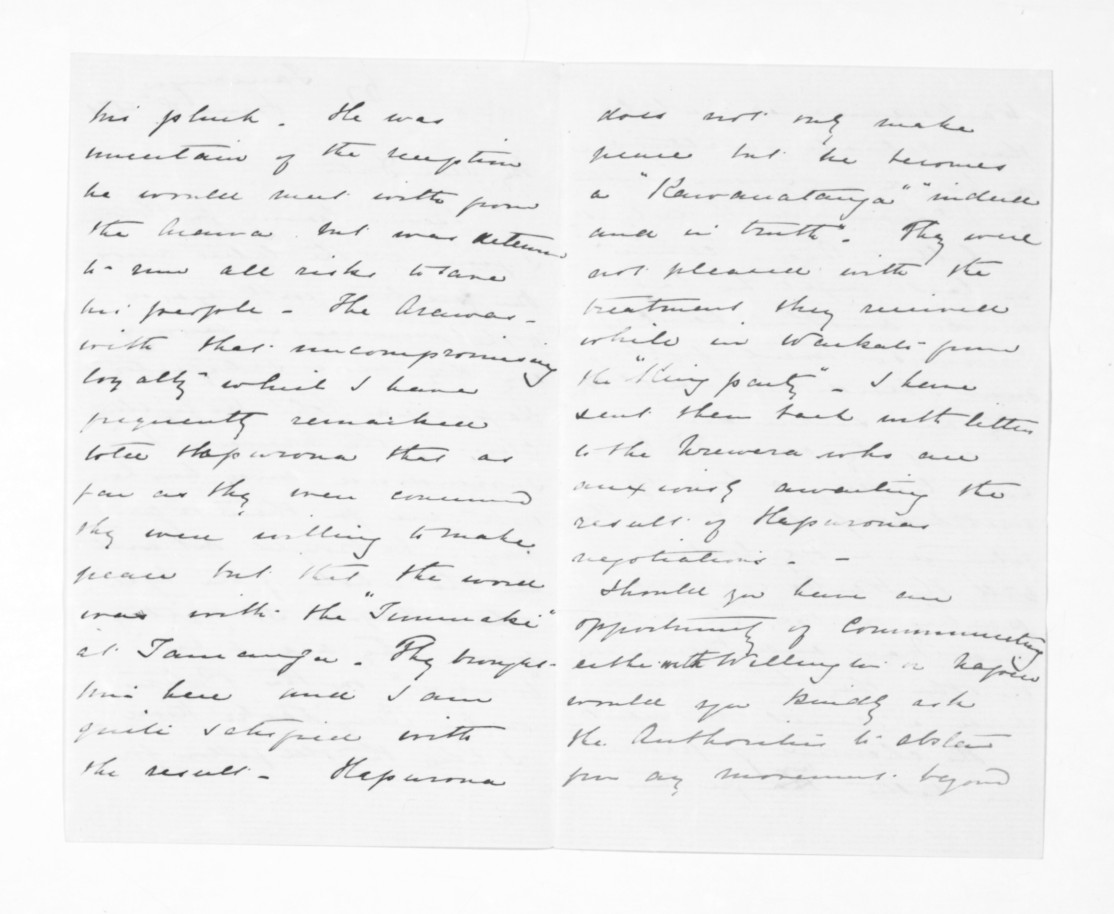 his pluck. He was
uncertain of the reception
he would meet with from
the Arawa but was determined
to run all risks to save
his people - The Arawas -
with that uncompromising
loyalty which I have
frequently remarked
told Hapurona that as
far as they were concerned
they were willing to make
peace but that the word
was with the "Tumuaki"
at Tauranga. They brought
him here and I am
quite satisfied with
the result - Hapurona
does not only make
peace but he becomes
a "Kawanatanga" "indeed
and in truth". They were
not pleased with the
treatment they received
while in Waikato from
the "King party" - I have
sent them back with letters
to the Urewera who are
anxiously awaiting the
result of Hapurona's
negotiations. -
Should you have an
opportunity of communicating
either with Wellington or Napier
would you kindly ask
the Authorities to abstain
from any movement beyond